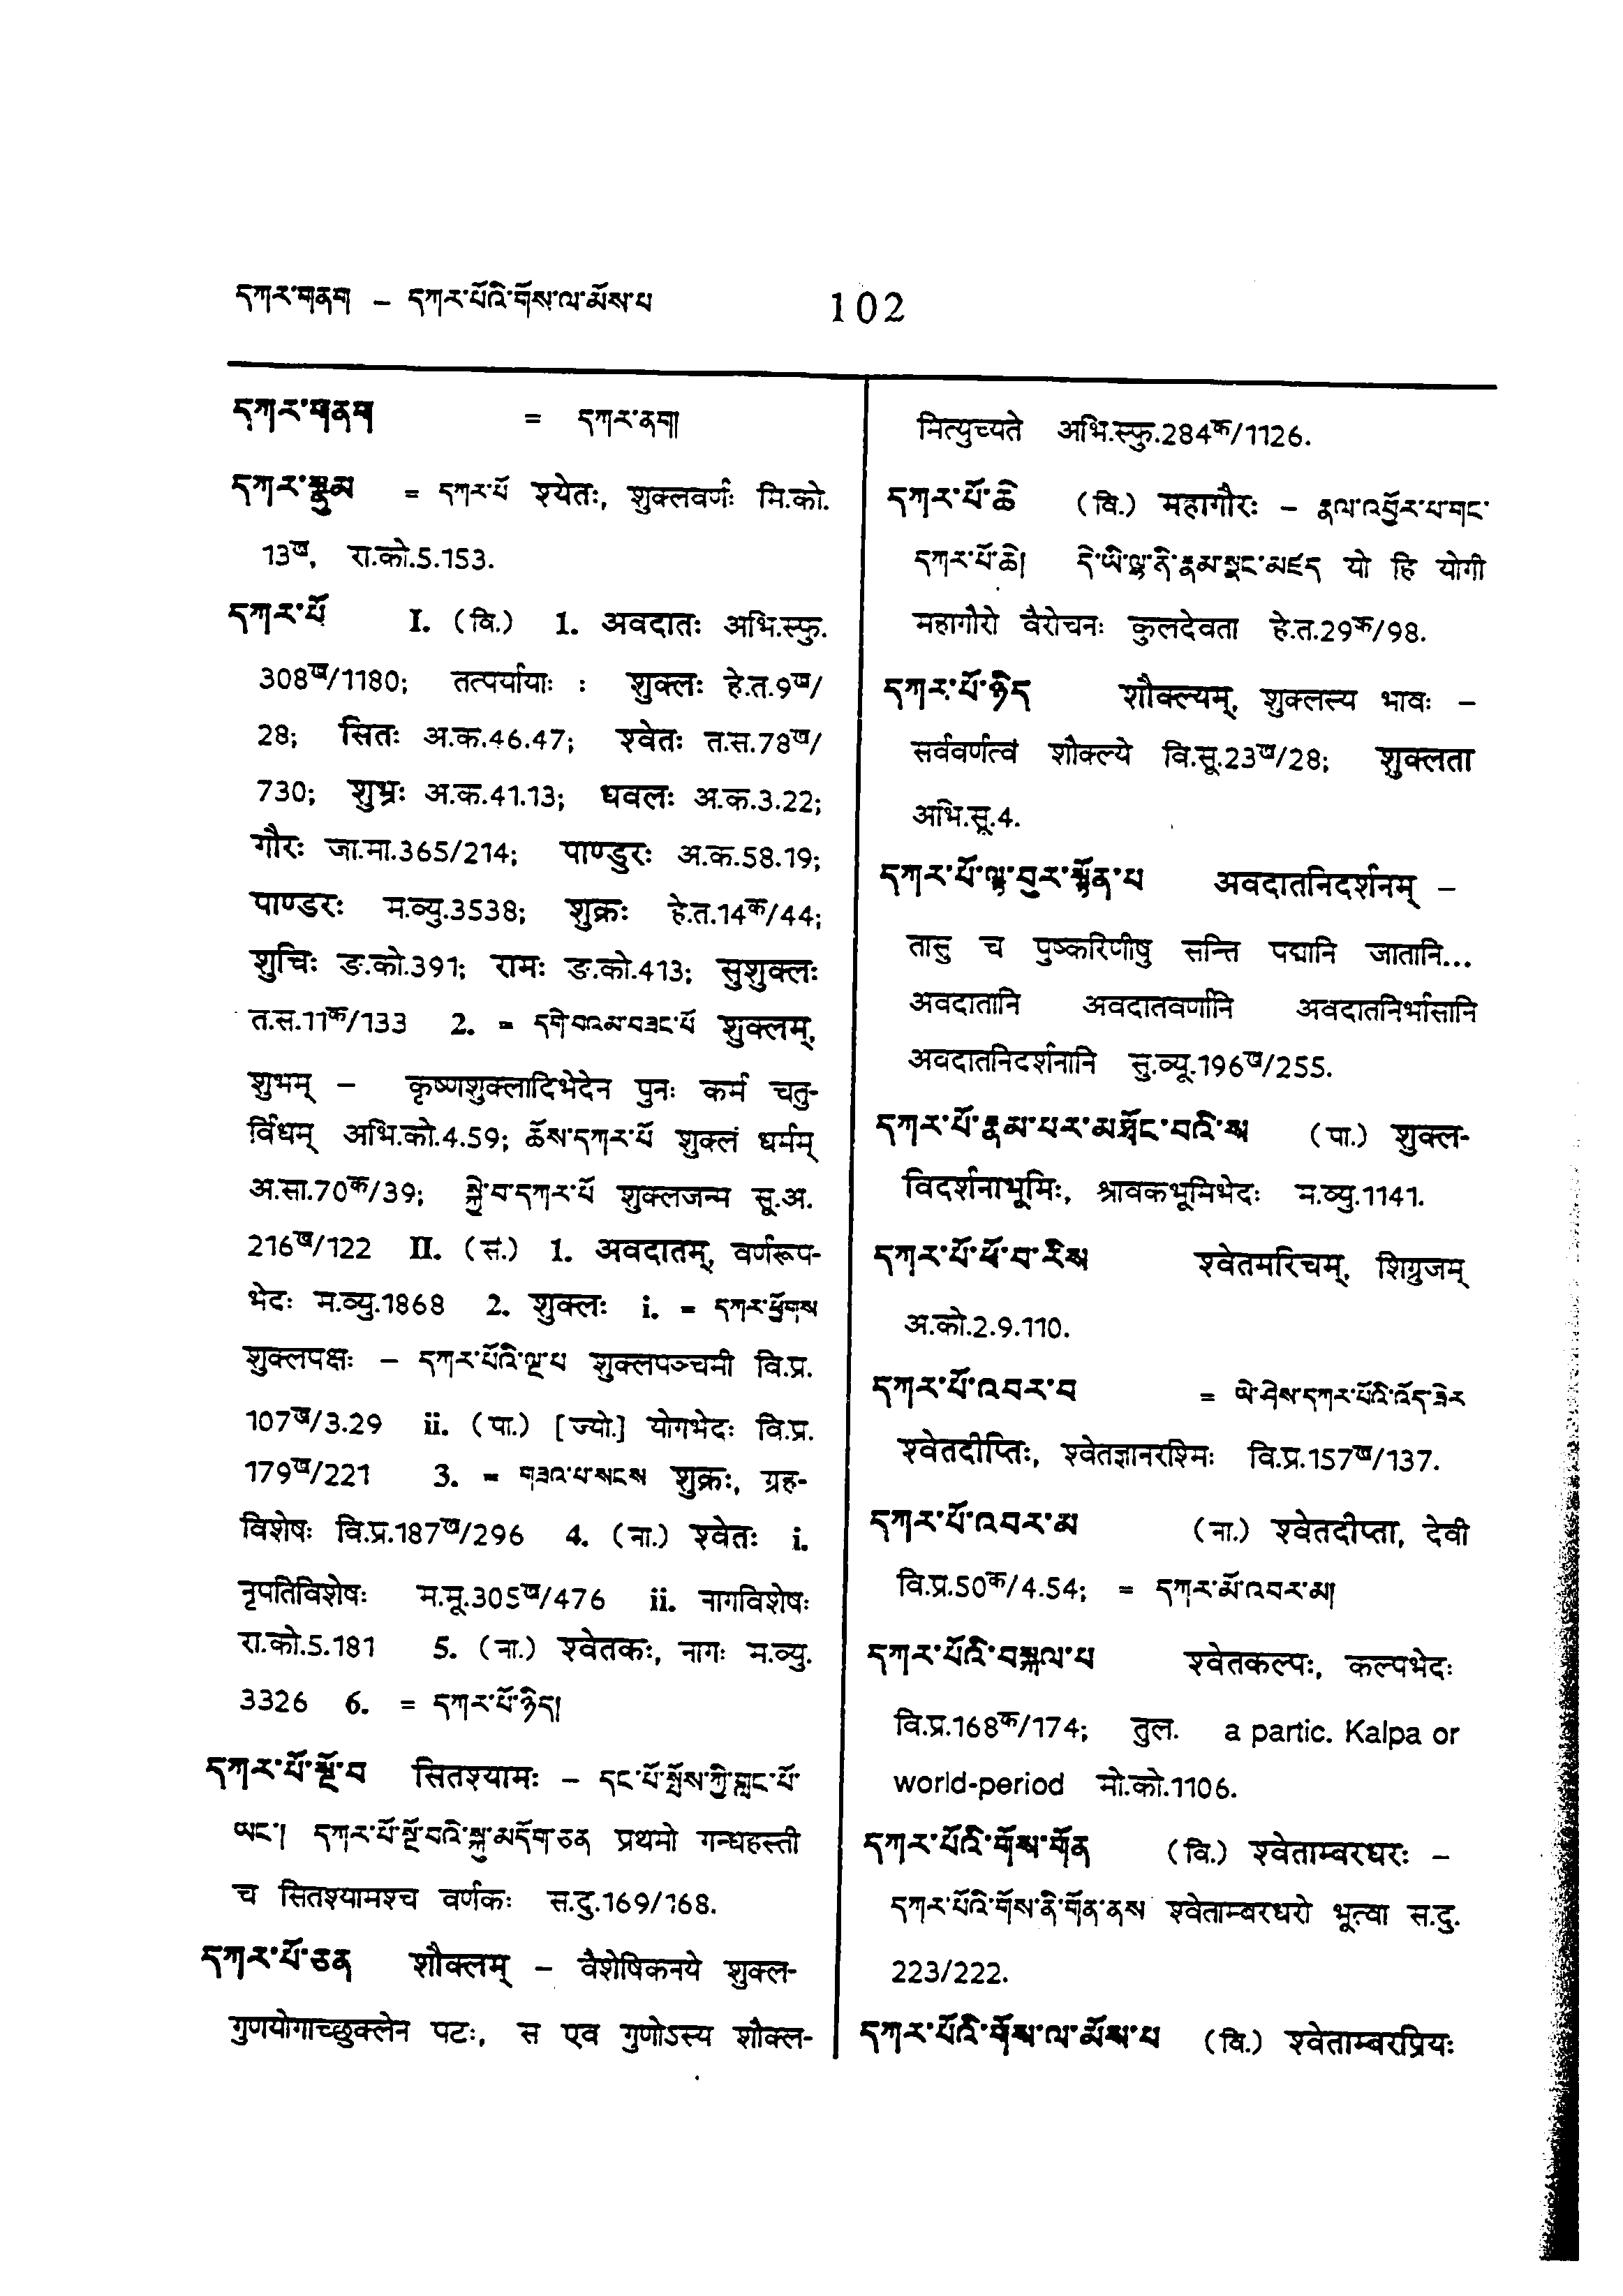 དཀར་གནག – དཀར་པོའི་གོས་ལ་མོས་པ 102
དཀར་གནག = དཀར་ནག།
དཀར་སྣུམ = དཀར་པོ श्येतः, शुक्लवर्णः मि.को.
13ख, रा.को.5.153.
དཀར་པོ I. (वि.) 1. अवदातः अभि.स्फु.
308ख/1180; तत्पर्यायाः : शुक्लः हे.त.9ख/
28; सितः अ.क.46.47; श्वेतः त.स.78ख/
730; शुभ्रः अ.क.41.13; धवलः अ.क.3.22;
गौरः जा.मा.365/214; पाण्डुरः अ.क.58.19;
पाण्डरः म.व्यु.3538; शुक्रः हे.त.14क/44;
शुचिः ङ.को.391; रामः ङ.को.413; सुशुक्लः
त.स.11क/133 2. = དགེ་བའམ་བཟང་པོ शुक्लम्,
शुभम् – कृष्णशुक्लादिभेदेन पुनः कर्म चतु-
र्विधम् अभि.को.4.59; ཆོས་དཀར་པོ शुक्लं धर्मम्
अ.सा.70क/39; སྐྱེ་བ་དཀར་པོ शुक्लजन्म सू.अ.
216ख/122 II. (सं.) 1. अवदातम्, वर्णरूप-
भेदः म.व्यु.1868 2. शुक्लः i. = དཀར་ཕྱོགས
शुक्लपक्षः – དཀར་པོའི་ལྔ་པ शुक्लपञ्चमी वि.प्र.
107ख/3.29 ii. (पा.) [ज्यो.] योगभेदः वि.प्र.
179ख/221 3. = གཟའ་པ་སངས शुक्रः, ग्रह-
विशेषः वि.प्र.187ख/296 4. (ना.) श्वेतः i.
नृपतिविशेषः म.मू.305ख/476 ii. नागविशेषः
रा.को.5.181 5. (ना.) श्वेतकः, नागः म.व्यु.
3326 6. = དཀར་པོ་ཉིད།
དཀར་པོ་སྔོ་བ सितश्यामः – དང་པོ་སྤོས་ཀྱི་གླང་པོ་
ཡང་། དཀར་པོ་སྔོ་བའི་སྐུ་མདོག་ཅན प्रथमो गन्धहस्ती
च सितश्यामश्च वर्णकः स.दु.169/168.
དཀར་པོ་ཅན शौक्लम् – वैशेषिकनये शुक्ल-
गुणयोगाच्छुक्लेन पटः, स एव गुणोऽस्य शौक्ल-
मित्युच्यते अभि.स्फु.284क/1126.
དཀར་པོ་ཆེ (वि.) महागौरः – རྣལ་འབྱོར་པ་གང་
དཀར་པོ་ཆེ། དེ་ཡི་ལྷ་ནི་རྣམ་སྣང་མཛད यो हि योगी
महागौरो वैरोचनः कुलदेवता हे.त.29क/98.
དཀར་པོ་ཉིད शौक्ल्यम्, शुक्लस्य भावः –
सर्ववर्णत्वं शौक्ल्ये वि.सू.23ख/28; शुक्लता
अभि.सू.4.
དཀར་པོ་ལྟ་བུར་སྟོན་པ अवदातनिदर्शनम् –
तासु च पुष्करिणीषु सन्ति पद्मानि जातानि...
अवदातानि अवदातवर्णानि अवदातनिर्भासानि
अवदातनिदर्शनानि सु.व्यू.196ख/255.
དཀར་པོ་རྣམ་པར་མཐོང་བའི་ས (पा.) शुक्ल-
विदर्शनाभूमिः, श्रावकभूमिभेदः म.व्यु.1141.
དཀར་པོ་ཕོ་བ་རིས श्वेतमरिचम्, शिग्रुजम्
अ.को.2.9.110.
དཀར་པོ་འབར་བ = ཡེ་ཤེས་དཀར་པོའི་འོད་ཟེར
श्वेतदीप्तिः, श्वेतज्ञानरश्मिः वि.प्र.157ख/137.
དཀར་པོ་འབར་མ (ना.) श्वेतदीप्ता, देवी
वि.प्र.50क/4.54; = དཀར་མོ་འབར་མ།
དཀར་པོའི་བསྐལ་པ श्वेतकल्पः, कल्पभेदः
वि.प्र.168क/174; तुल. a partic. Kalpa or
world-period मो.को.1106.
དཀར་པོའི་གོས་གོན (वि.) श्वेताम्बरधरः –
དཀར་པོའི་གོས་ནི་གོན་ནས श्वेताम्बरधरो भूत्वा स.दु.
223/222.
དཀར་པོའི་གོས་ལ་མོས་པ (वि.) श्वेताम्बरप्रियः